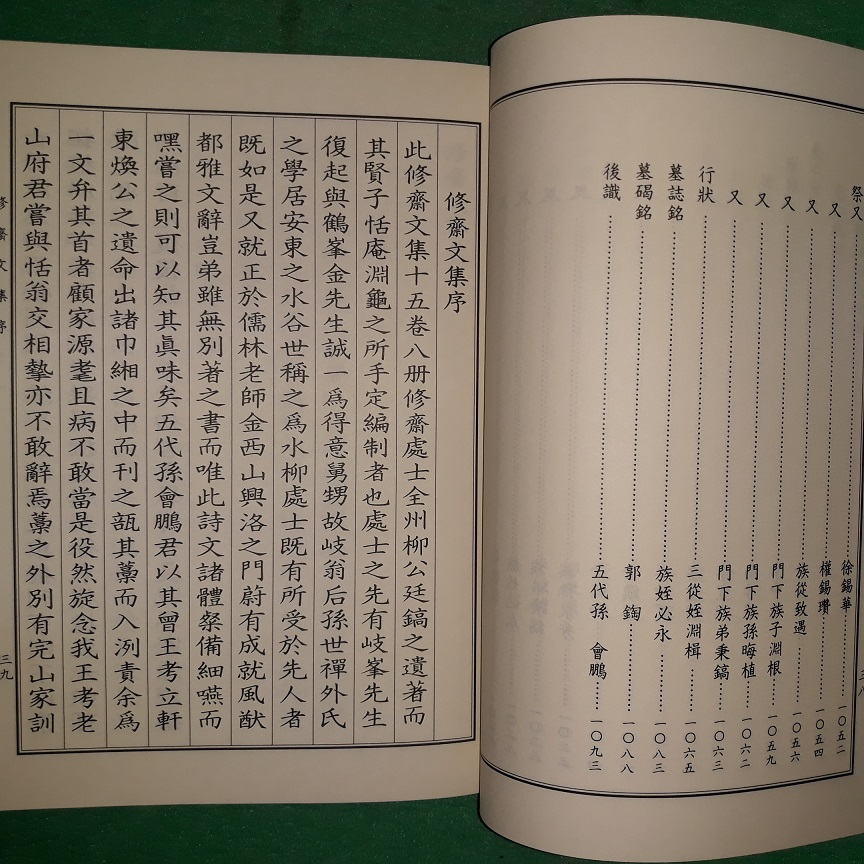 又……徐錫華……一〇五二
又……權錫瓚……一〇五四
又……族從致遇……一〇五六
又……門下族子淵根……一〇五九
又……門下族孫晦植……一〇六二
又……門下族弟秉鎬……一〇六三
行狀……三從姪淵楫……一〇六五
墓誌銘……族姪必永……一〇八三
墓碣銘……郭 鋾……一〇八八
後識……五代孫 會鵬……一〇九三
三八
修齋文集序
此修齋文集十五卷八册修齋處士全州柳公廷鎬之遺著而
其賢子恬庵淵龜之所手定編制者也處士之先有岐峯先生
復起與鶴峯金先生誠一爲得意舅甥故岐翁后孫世禪外氏
之學居安東之水谷世稱之爲水柳處士既有所受於先人者
既如是又就正於儒林老師金西山興洛之門蔚有成就風猷
都雅文辭豈弟雖無別著之書而唯此詩文諸體粲備細嚥而
嘿嘗之則可以知其眞味矣五代孫會鵬君以其曾王考立軒
東煥公之遺命出諸巾緗之中而刊之瓿其藁而入洌責余爲
一文弁其首者顧家源耄且病不敢當是役然旋念我王考老
山府君嘗與恬翁交相摯亦不敢辭焉藁之外別有完山家訓
修齋文集序
三九